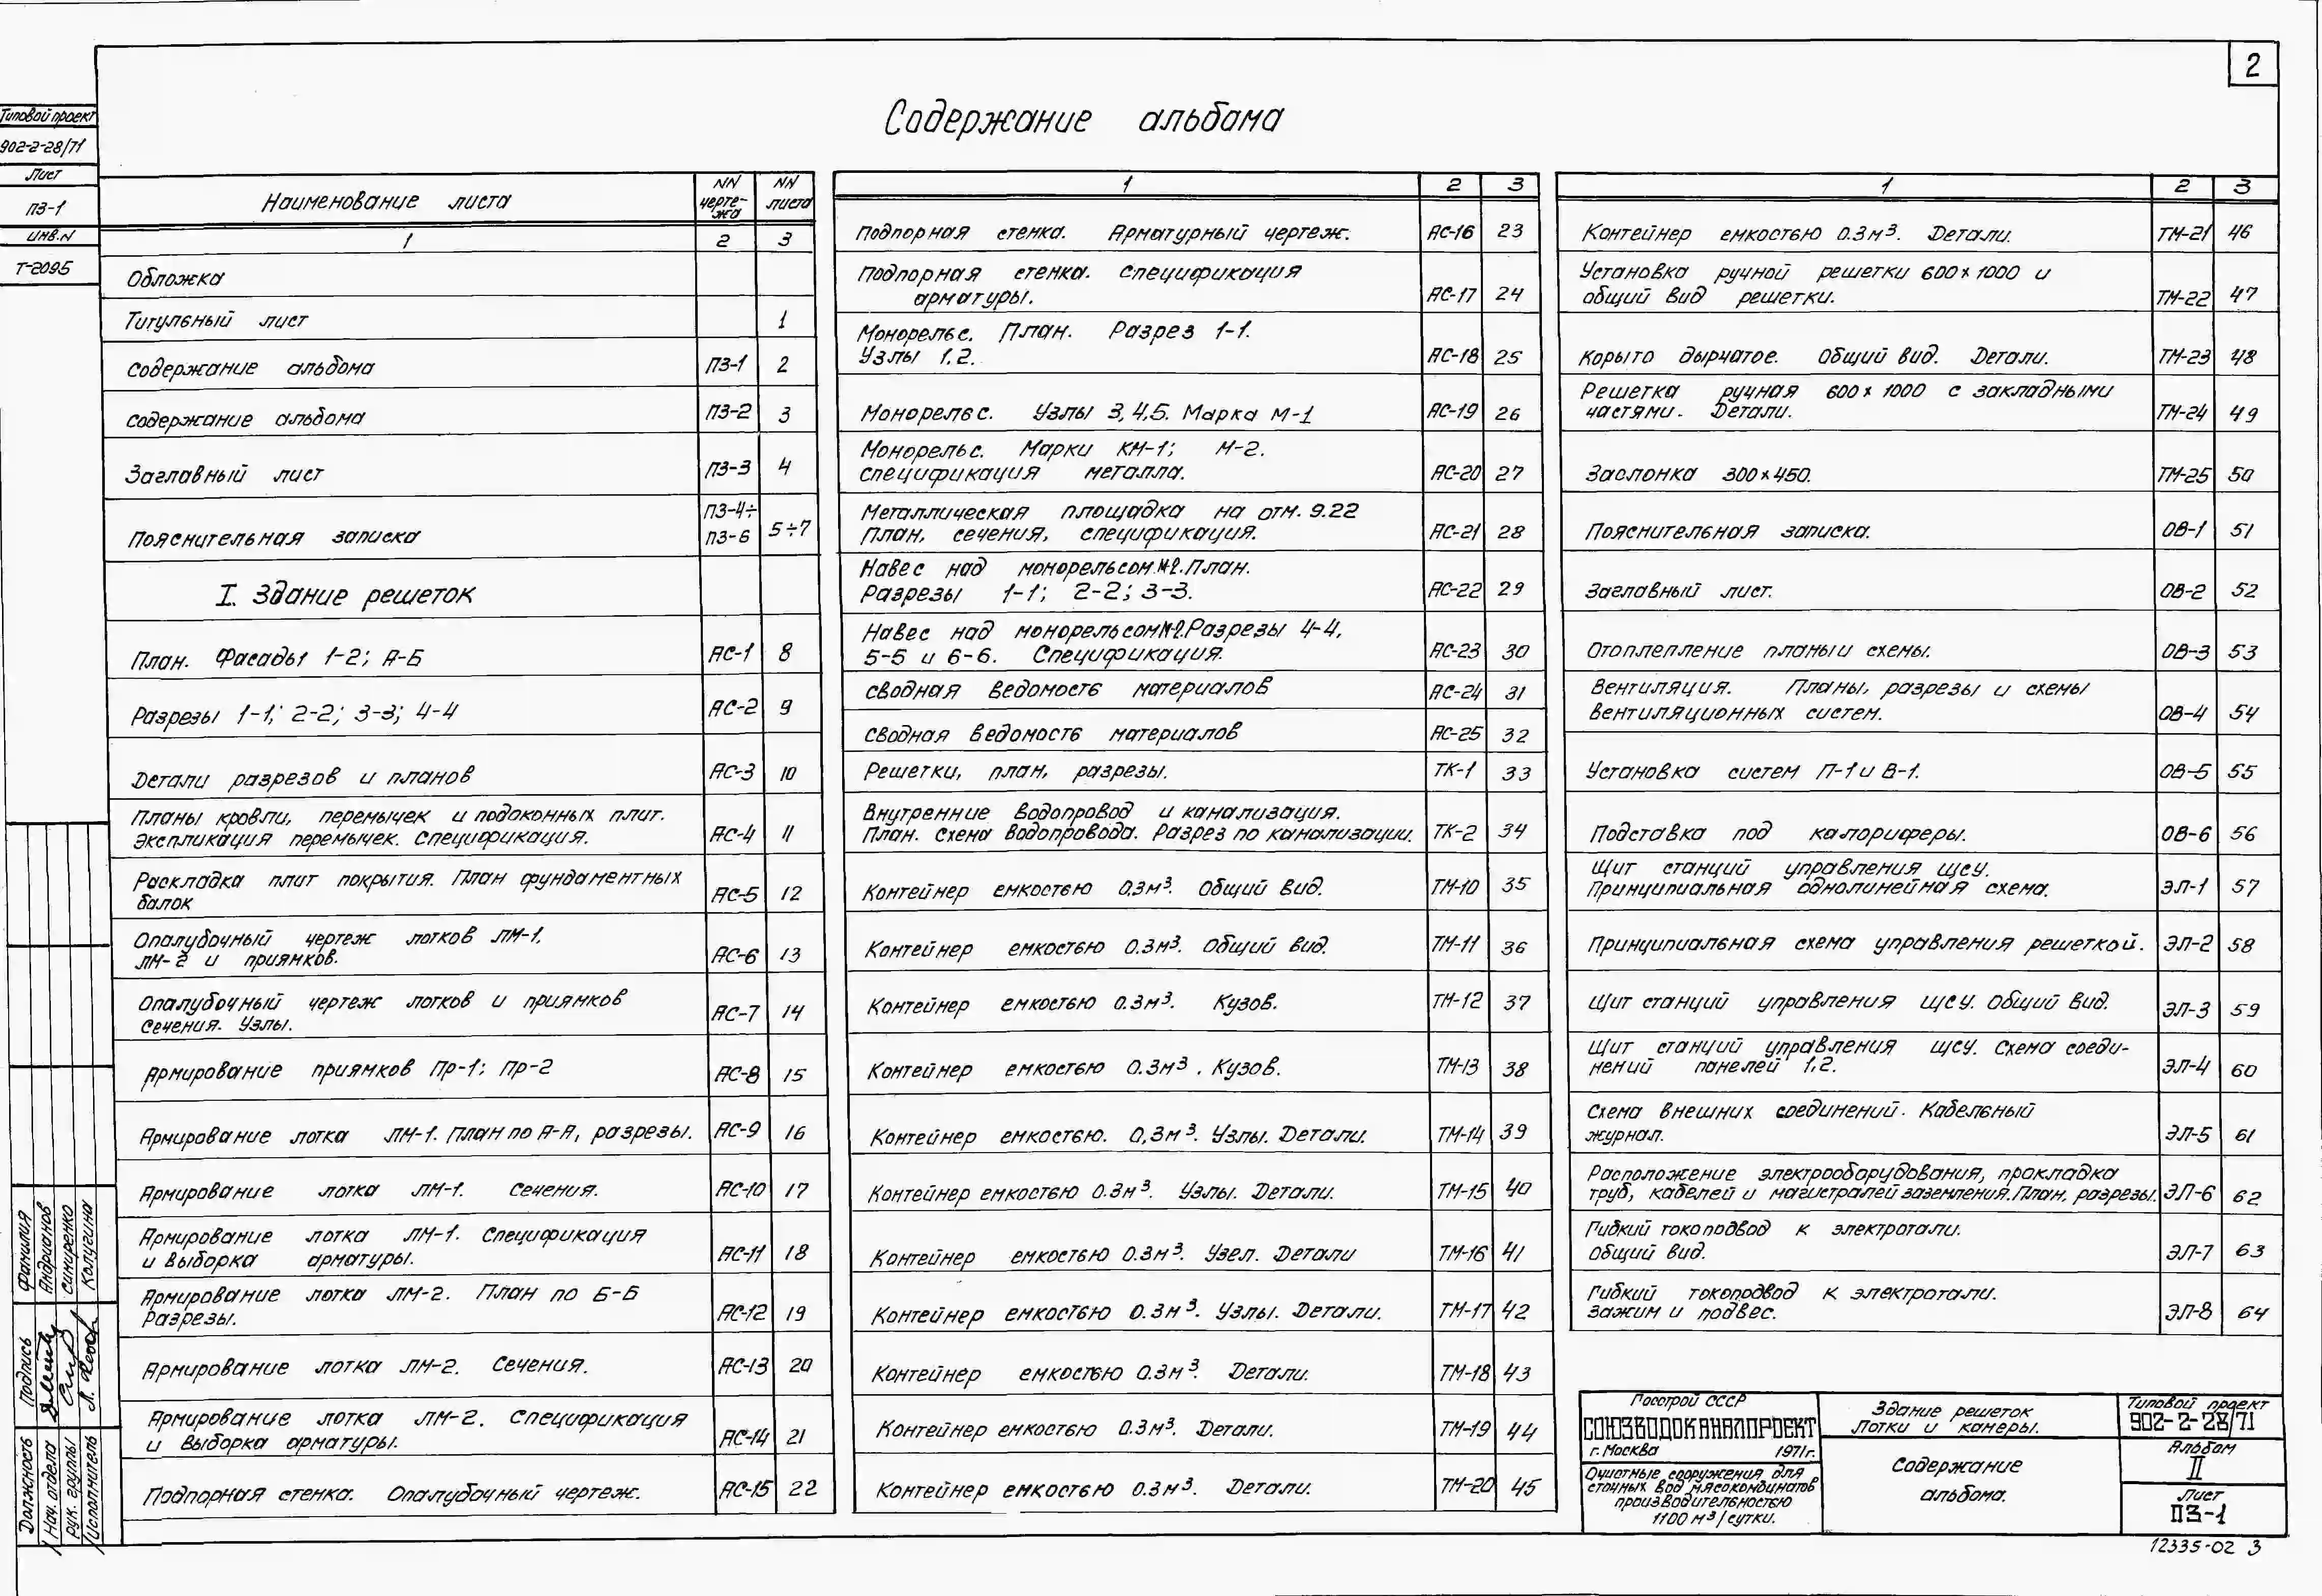 2
Содержание альбома
Типовой проект
902-2-28/71
Лист
ПЗ-1
Инв.N
Т-2095
Наименование листа
NN чертежа
NN листа
1 2 3
Обложка
Титульный лист 1
Содержание альбома ПЗ-1 2
Содержание альбома ПЗ-2 3
Заглавный лист ПЗ-3 4
Пояснительная записка ПЗ-4÷ ПЗ-6 5÷7
I. Здание решеток
План. Фасады 1-2; А-Б АС-1 8
Разрезы 1-1; 2-2; 3-3; 4-4 АС-2 9
Детали разрезов и планов АС-3 10
Планы кровли, перемычек и подоконных плит.
Экспликация перемычек. Спецификация. АС-4 11
Раскладка плит покрытия. План фундаментных
балок АС-5 12
Опалубочный чертеж лотков ЛМ-1.
ЛМ-2 и приямков. АС-6 13
Опалубочный чертеж лотков и приямков
Сечения. Узлы. АС-7 14
Армирование приямков Пр-1; Пр-2 АС-8 15
Армирование лотка ЛМ-1. План по А-А, разрезы. АС-9 16
Армирование лотка ЛМ-1. Сечения. АС-10 17
Армирование лотка ЛМ-1. Спецификация
и выборка арматуры. АС-11 18
Армирование лотка ЛМ-2. План по Б-Б
Разрезы. АС-12 19
Армирование лотка ЛМ-2. Сечения. АС-13 20
Армирование лотка ЛМ-2. Спецификация
и выборка арматуры. АС-14 21
Подпорная стенка. Опалубочный чертеж. АС-15 22
1 2 3
Подпорная стенка. Арматурный чертеж. АС-16 23
Подпорная стенка. Спецификация
арматуры. АС-17 24
Монорельс. План. Разрез 1-1.
Узлы 1.2. АС-18 25
Монорельс. Узлы 3,4,5. Марка М-1 АС-19 26
Монорельс. Марки КМ-1; М-2.
Спецификация металла. АС-20 27
Металлическая площадка на отм. 9.22
План, сечения, спецификация. АС-21 28
Навес над монорельсом №2. План.
Разрезы 1-1; 2-2; 3-3. АС-22 29
Навес над монорельсом №2. Разрезы 4-4,
5-5 и 6-6. Спецификация. АС-23 30
Сводная ведомость материалов АС-24 31
Сводная ведомость материалов АС-25 32
Решетки, план, разрезы. ТК-1 33
Внутренние водопровод и канализация.
План. Схема водопровода. Разрез по канализации. ТК-2 34
Контейнер емкостью 0,3м³. Общий вид. ТМ-10 35
Контейнер емкостью 0.3м³. Общий вид. ТМ-11 36
Контейнер емкостью 0.3м³. Кузов. ТМ-12 37
Контейнер емкостью 0.3м³. Кузов. ТМ-13 38
Контейнер емкостью. 0,3м³. Узлы. Детали. ТМ-14 39
Контейнер емкостью 0.3м³. Узлы. Детали. ТМ-15 40
Контейнер емкостью 0.3м³. Узел. Детали ТМ-16 41
Контейнер емкостью 0.3м³. Узлы. Детали. ТМ-17 42
Контейнер емкостью 0.3м³. Детали. ТМ-18 43
Контейнер емкостью 0.3м³. Детали. ТМ-19 44
Контейнер емкостью 0.3м³. Детали. ТМ-20 45
1 2 3
Контейнер емкостью 0.3м³. Детали. ТМ-21 46
Установка ручной решетки 600×1000 и
общий вид решетки. ТМ-22 47
Корыто дырчатое. Общий вид. Детали. ТМ-23 48
Решетка ручная 600×1000 с закладными
частями. Детали. ТМ-24 49
Заслонка 300×450. ТМ-25 50
Пояснительная записка. ОВ-1 51
Заглавный лист. ОВ-2 52
Отоплепление планы и схемы. ОВ-3 53
Вентиляция. Планы, разрезы и схемы
вентиляционных систем. ОВ-4 54
Установка систем П-1 и В-1. ОВ-5 55
Подставка под калориферы. ОВ-6 56
Щит станций управления ЩСУ.
Принципиальная однолинейная схема. ЭЛ-1 57
Принципиальная схема управления решеткой. ЭЛ-2 58
Щит станций управления ЩСУ. Общий вид. ЭЛ-3 59
Щит станций управления ЩСУ. Схема соеди-
нений панелей 1,2. ЭЛ-4 60
Схема внешних соединений. Кабельный
журнал. ЭЛ-5 61
Расположение электрооборудования, прокладка
труб, кабелей и магистралей заземления. План, разрезы. ЭЛ-6 62
Гибкий токоподвод к электротали.
Общий вид. ЭЛ-7 63
Гибкий токоподвод к электротали.
Зажим и подвес. ЭЛ-8 64
Должность Подпись Фамилия
Нач. отдела Андрианов
Рук. группы Синиренко
Исполнитель Калугина
Госстрой СССР
СОЮЗВОДОКАНАЛПРОЕКТ
г. Москва 1971г.
Очистные сооружения для
сточных вод мясокомбинатов
производительностью
1100 м³/сутки.
Здание решеток
Лотки и камеры.
Содержание
альбома.
Типовой проект
902-2-28/71
Альбом
II
Лист
ПЗ-1
12335-02 3